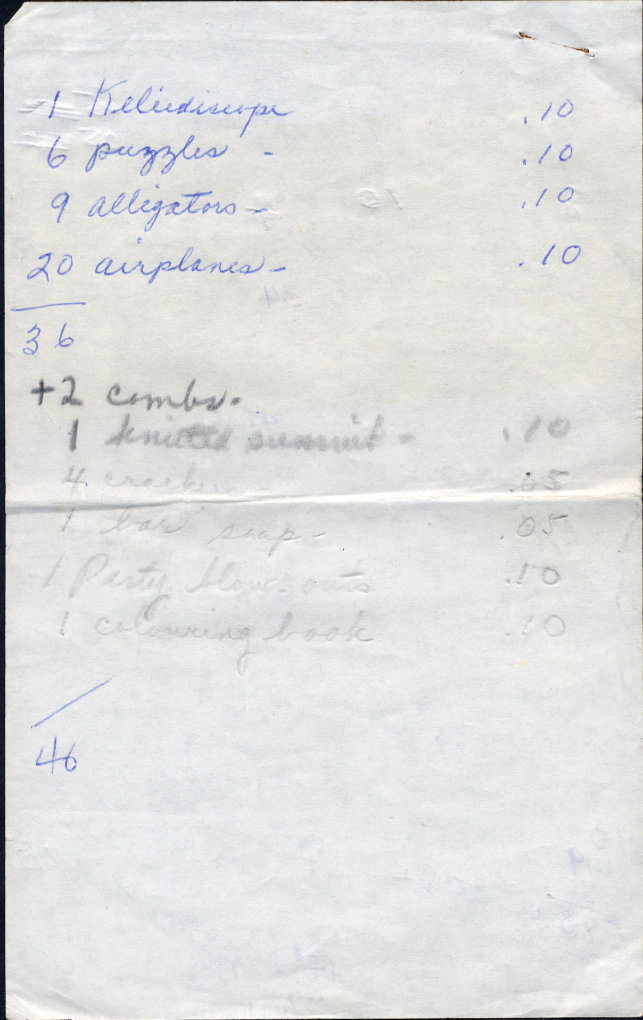 1 Keliediscope .10
6 puzzles - .10
9 alligators - .10
20 airplanes - .10
36
+2 combs.
1 knitted - .10
4 .05
1 bar soap - .05
1 Party blow-outs .10
1 colouring book .10
46